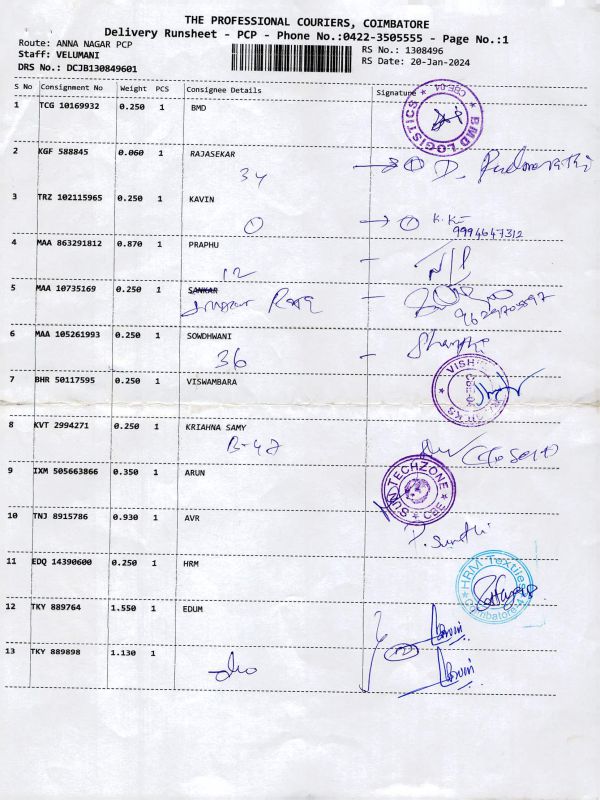 THE PROFESSIONAL COURIERS, COIMBATORE
Delivery Runsheet - PCP - Phone No.:0422-3505555 - Page No.:1
Route: ANNA NAGAR PCP
Staff: VELUMANI
DRS No.: DCJB130849601
RS No.: 1308496
RS Date: 20-Jan-2024
S No Consignment No Weight PCS Consignee Details Signature
1 TCG 10169932 0.250 1 BMD
BMD LOGISTICS CBE-04
2 KGF 588845 0.060 1 RAJASEKAR
34
3 TRZ 102115965 0.250 1 KAVIN
1 1 9994647312
4 MAA 863291812 0.870 1 PRAPHU
12
5 MAA 10735169 0.250 1 SANKAR
6 MAA 105261993 0.250 1 SOWDHWANI
36
7 BHR 50117595 0.250 1 VISWAMBARA
8 KVT 2994271 0.250 1 KRIAHNA SAMY
B-47
9 IXM 505663866 0.350 1 ARUN
SUN TECHZONE CBE
10 TNJ 8915786 0.930 1 AVR
11 EDQ 14390600 0.250 1 HRM
HRM Textiles Coimbatore-4
12 TKY 889764 1.550 1 EDUM
13 TKY 889898 1.130 1